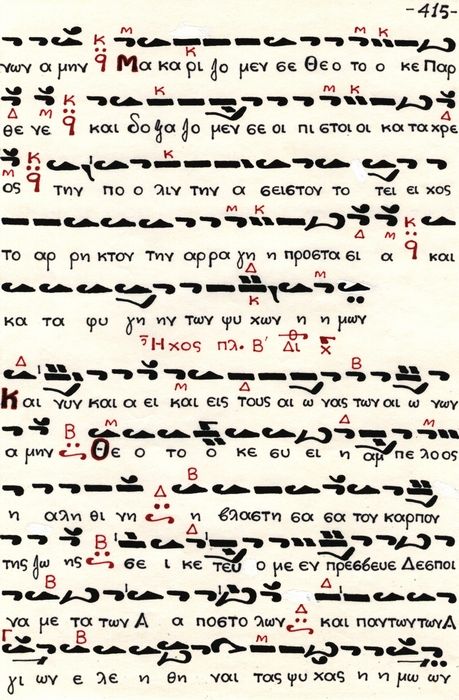 -415-
νων α μην Μα κα ρι ζο μεν σε Θεο το ο κε Παρ
θε νε και δο ξα ζο μεν σε οι πι στοι οι κα τα χρε
ος την πο ο λιν την α σειστον το τει ει χος
το αρ ρη κτον την αρ ρα γη η προστα σι α και
κα τα φυ γη ην των ψυ χων η η μων
Ηχος πλ. Β΄ Δι
Και νυν και α ει και εις τους αι ω νας των αι ω νων
α μην Θε ο το ο κε συ ει η αμ πε λο ος
η αλη θι νη η βλαστη σα σα τον καρπον
της ζω ης σε ι κε τευ ο με εν πρεσβευε Δεσποι
να με τα των Α α ποστο λων και παντων των Α
γι ων ε λε η θη ναι τας ψυ χας η η μω ων